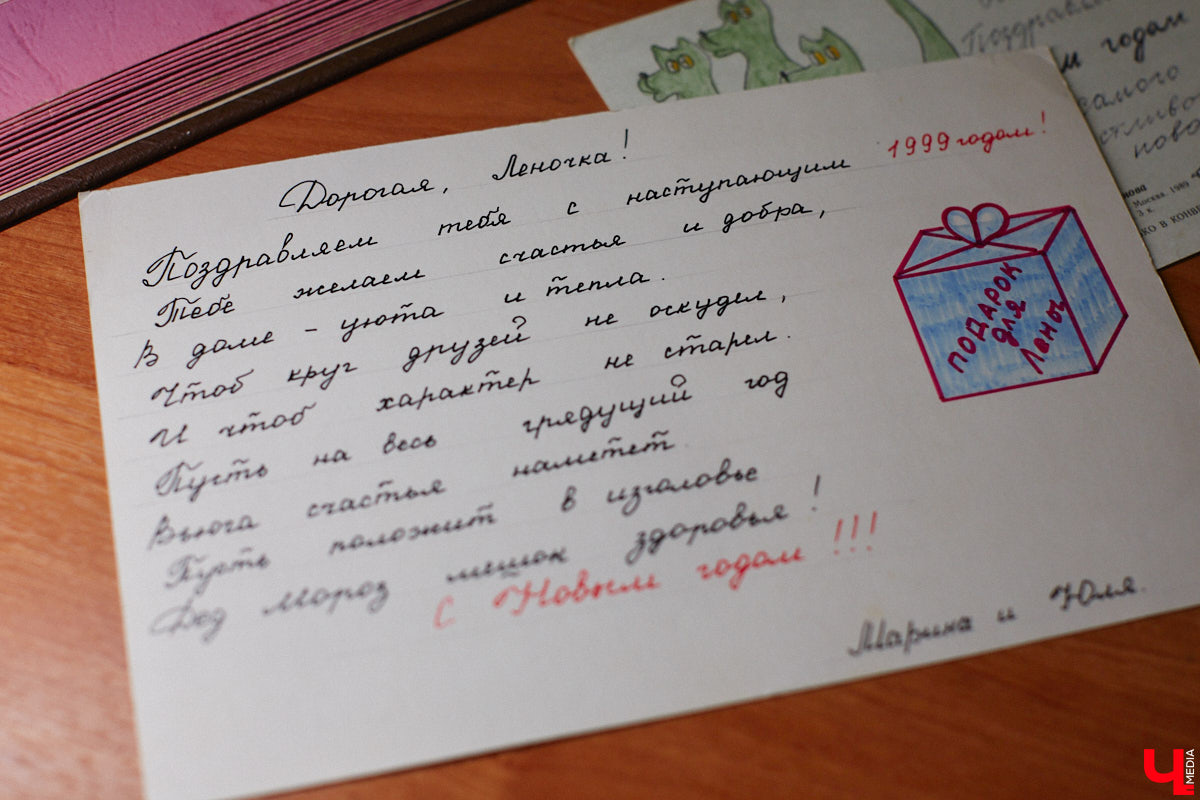 Дорогая, Леночка!
Поздравляем тебя с наступающим 1999 годом!
Тебе желаем счастья и добра,
В доме – уюта и тепла.
Чтоб круг друзей не оскудел,
И чтоб характер не старел.
Пусть на весь грядущий год
Вьюга счастья наметет
Пусть положит в изголовье
Дед Мороз мешок здоровья!
С Новым годом!!!
Марина и Юля.
ПОДАРОК
ДЛЯ
Лены
годом
самого
ново
Москва. 1989
3 к.
MEDIA